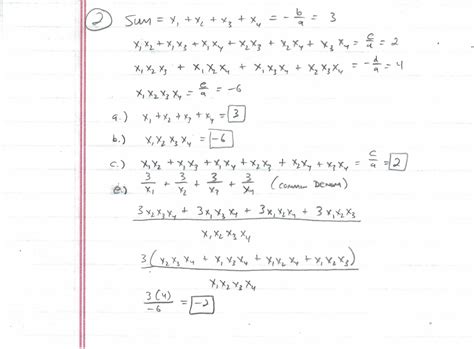 ② Sum = x₁ + x₂ + x₃ + x₄ = -b/a = 3
x₁x₂ + x₁x₃ + x₁x₄ + x₂x₃ + x₂x₄ + x₃x₄ = c/a = 2
x₁x₂x₃ + x₁x₂x₄ + x₁x₃x₄ + x₂x₃x₄ = -d/a = 4
x₁x₂x₃x₄ = e/a = -6
a.) x₁ + x₂ + x₃ + x₄ = 3
b.) x₁x₂x₃x₄ = -6
c.) x₁x₂ + x₁x₃ + x₁x₄ + x₂x₃ + x₂x₄ + x₃x₄ = c/a = 2
e.) 3/x₁ + 3/x₂ + 3/x₃ + 3/x₄ (common Denom)
3x₂x₃x₄ + 3x₁x₃x₄ + 3x₁x₂x₄ + 3x₁x₂x₃
x₁x₂x₃x₄
3(x₂x₃x₄ + x₁x₃x₄ + x₁x₂x₄ + x₁x₂x₃)
x₁x₂x₃x₄
3(4)/-6 = -2